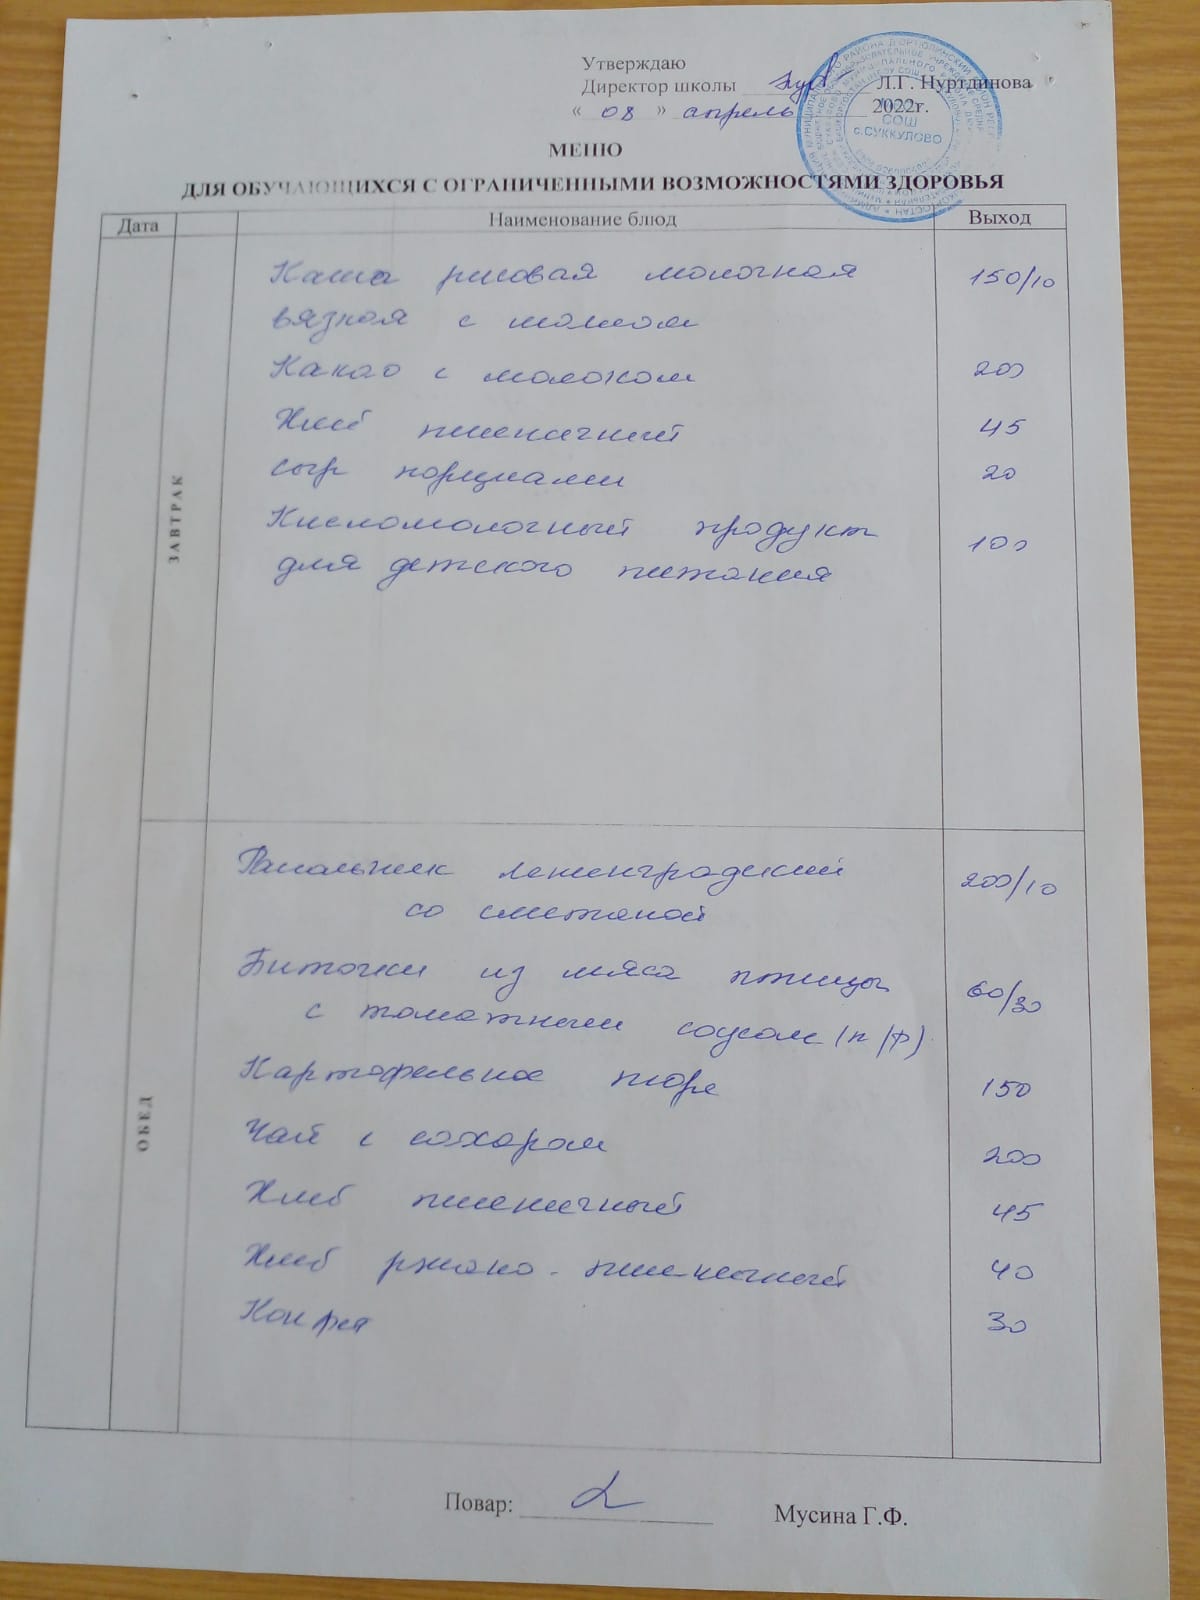 Утверждаю
Директор школы Л.Г. Нуртдинова
« 08 » апрель 2022г.
СОШ
с.СУККУЛОВО
МЕНЮ
ДЛЯ ОБУЧАЮЩИХСЯ С ОГРАНИЧЕННЫМИ ВОЗМОЖНОСТЯМИ ЗДОРОВЬЯ
Дата Наименование блюд Выход
ЗАВТРАК
Каша рисовая молочная 150/10
вязкая с маслом
Какао с молоком 200
Хлеб пшеничный 45
сыр порциями 20
Кисломолочный продукт 100
для детского питания
ОБЕД
Рассольник ленинградский 200/10
со сметаной
Биточки из мяса птицы 60/30
с томатным соусом (п/ф)
Картофельное пюре 150
Чай с сахаром 200
Хлеб пшеничный 45
Хлеб ржано-пшеничный 40
Конфет 30
Повар: Мусина Г.Ф.